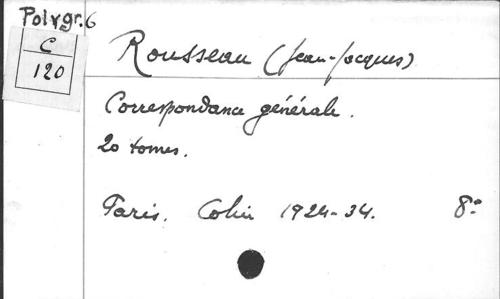 Polygr. 6
C
120
Rousseau (Jean-Jacques)
Correspondance générale.
20 tomes.
Paris. Colin 1924-34. 8°